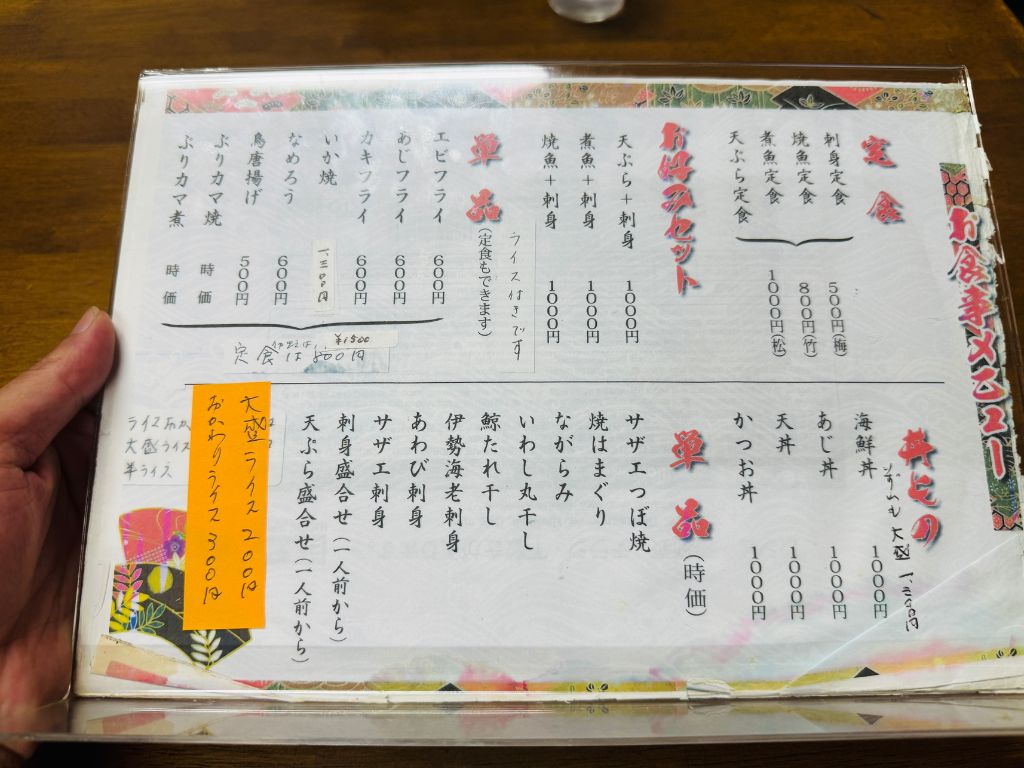 お食事メニュー
定食
刺身定食
焼魚定食
煮魚定食
天ぷら定食
500円(梅)
800円(竹)
1000円(松)
お好みセット
天ぷら+刺身 1000円
煮魚+刺身 1000円
焼魚+刺身 1000円
ライス付きです
単品(定食もできます)
エビフライ 600円
あじフライ 600円
カキフライ 600円
いか焼 一、三00円
なめろう 600円
鳥唐揚げ 500円
ぶりカマ焼 時価
ぶりカマ煮 時価
¥1500
定食は
丼もの
大盛 一、三00円
海鮮丼 1000円
あじ丼 1000円
天丼 1000円
かつお丼 1000円
単品(時価)
サザエつぼ焼
焼はまぐり
ながらみ
いわし丸干し
鯨たれ干し
伊勢海老刺身
あわび刺身
サザエ刺身
刺身盛合せ(一人前から)
天ぷら盛合せ(一人前から)
大盛ライス 200円
おかわりライス 300円
大盛ライス
半ライス